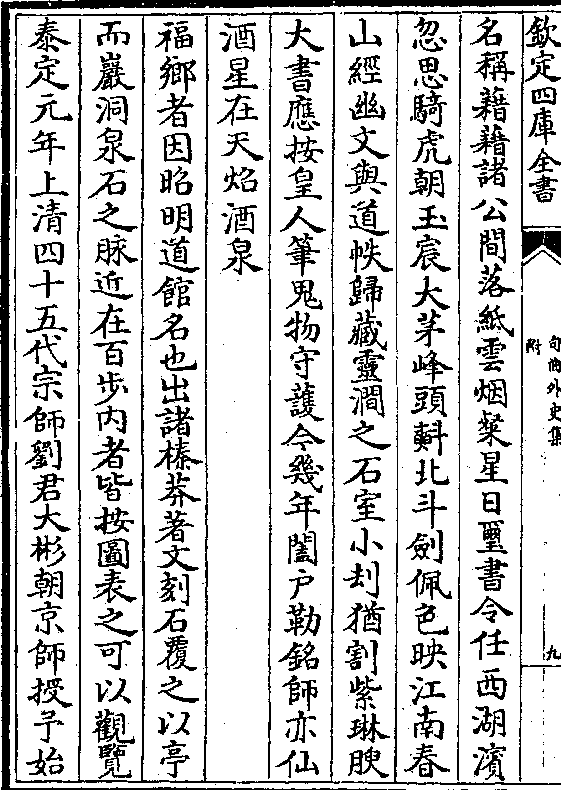 欽定四庫全書
句曲外史集
附
九
名稱藉藉諸公間落紙雲烟粲星日璽書令任西湖濱
忽思騎虎朝玉宸大茅峰頭㪺北斗劍佩色映江南春
山經幽文與道帙歸藏靈澗之石室小刦猶割紫琳腴
大書應按皇人筆鬼物守護今幾年闔户勒銘師亦仙
酒星在天焰酒泉
福鄉者因昭明道館名也出諸榛莽著文刻石覆之以亭
而巖洞泉石之脉近在百步内者皆按圖表之可以觀覽
泰定元年上清四十五代宗師劉君大彬朝京師授予始